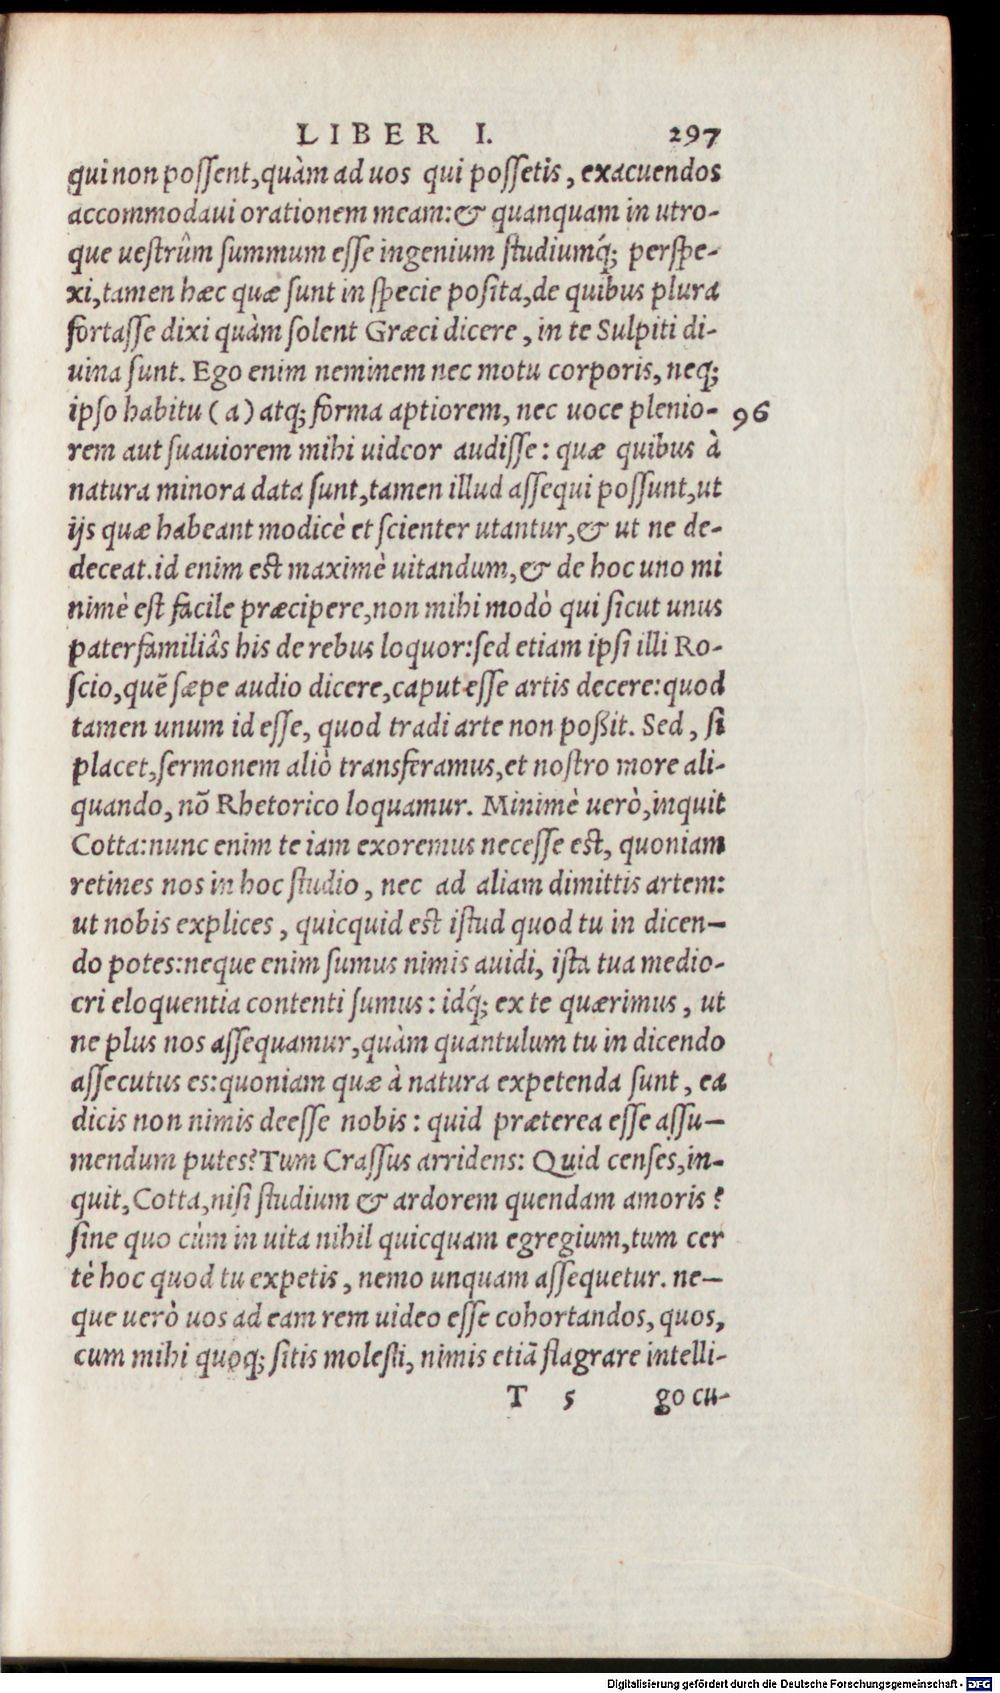 LIBER I. 297
qui non possent,quàm ad uos qui possetis, exacuendos
accommodaui orationem meam:& quanquam in utro-
que uestrûm summum esse ingenium studiumq́; perspe-
xi,tamen hæc quæ sunt in specie posita,de quibus plura
fortasse dixi quàm solent Græci dicere, in te Sulpiti di-
uina sunt. Ego enim neminem nec motu corporis, neq;
ipso habitu (a) atq; forma aptiorem, nec uoce plenio- 96
rem aut suauiorem mihi uideor audisse: quæ quibus à
natura minora data sunt,tamen illud assequi possunt,ut
ijs quæ habeant modicè et scienter utantur,& ut ne de-
deceat.id enim est maximè uitandum,& de hoc uno mi
nimè est facile præcipere,non mihi modò qui sicut unus
paterfamiliâs his de rebus loquor:sed etiam ipsi illi Ro-
scio,quẽ sæpe audio dicere,caput esse artis decere:quod
tamen unum id esse, quod tradi arte non poßit. Sed, si
placet,sermonem aliò transferamus,et nostro more ali-
quando, nõ Rhetorico loquamur. Minimè uerò,inquit
Cotta:nunc enim te iam exoremus necesse est, quoniam
retines nos in hoc studio, nec ad aliam dimittis artem:
ut nobis explices, quicquid est istud quod tu in dicen-
do potes:neque enim sumus nimis auidi, ista tua medio-
cri eloquentia contenti sumus: idq́; ex te quærimus, ut
ne plus nos assequamur,quàm quantulum tu in dicendo
assecutus es:quoniam quæ à natura expetenda sunt, ea
dicis non nimis deesse nobis: quid præterea esse assu-
mendum putes? Tum Crassus arridens: Quid censes,in-
quit,Cotta,nisi studium & ardorem quendam amoris?
sine quo cùm in uita nihil quicquam egregium,tum cer
tè hoc quod tu expetis, nemo unquam assequetur. ne-
que uerò uos ad eam rem uideo esse cohortandos, quos,
cum mihi quoq; sitis molesti, nimis etiã flagrare intelli-
T 5 go cu-
Digitalisierung gefördert durch die Deutsche Forschungsgemeinschaft - DFG